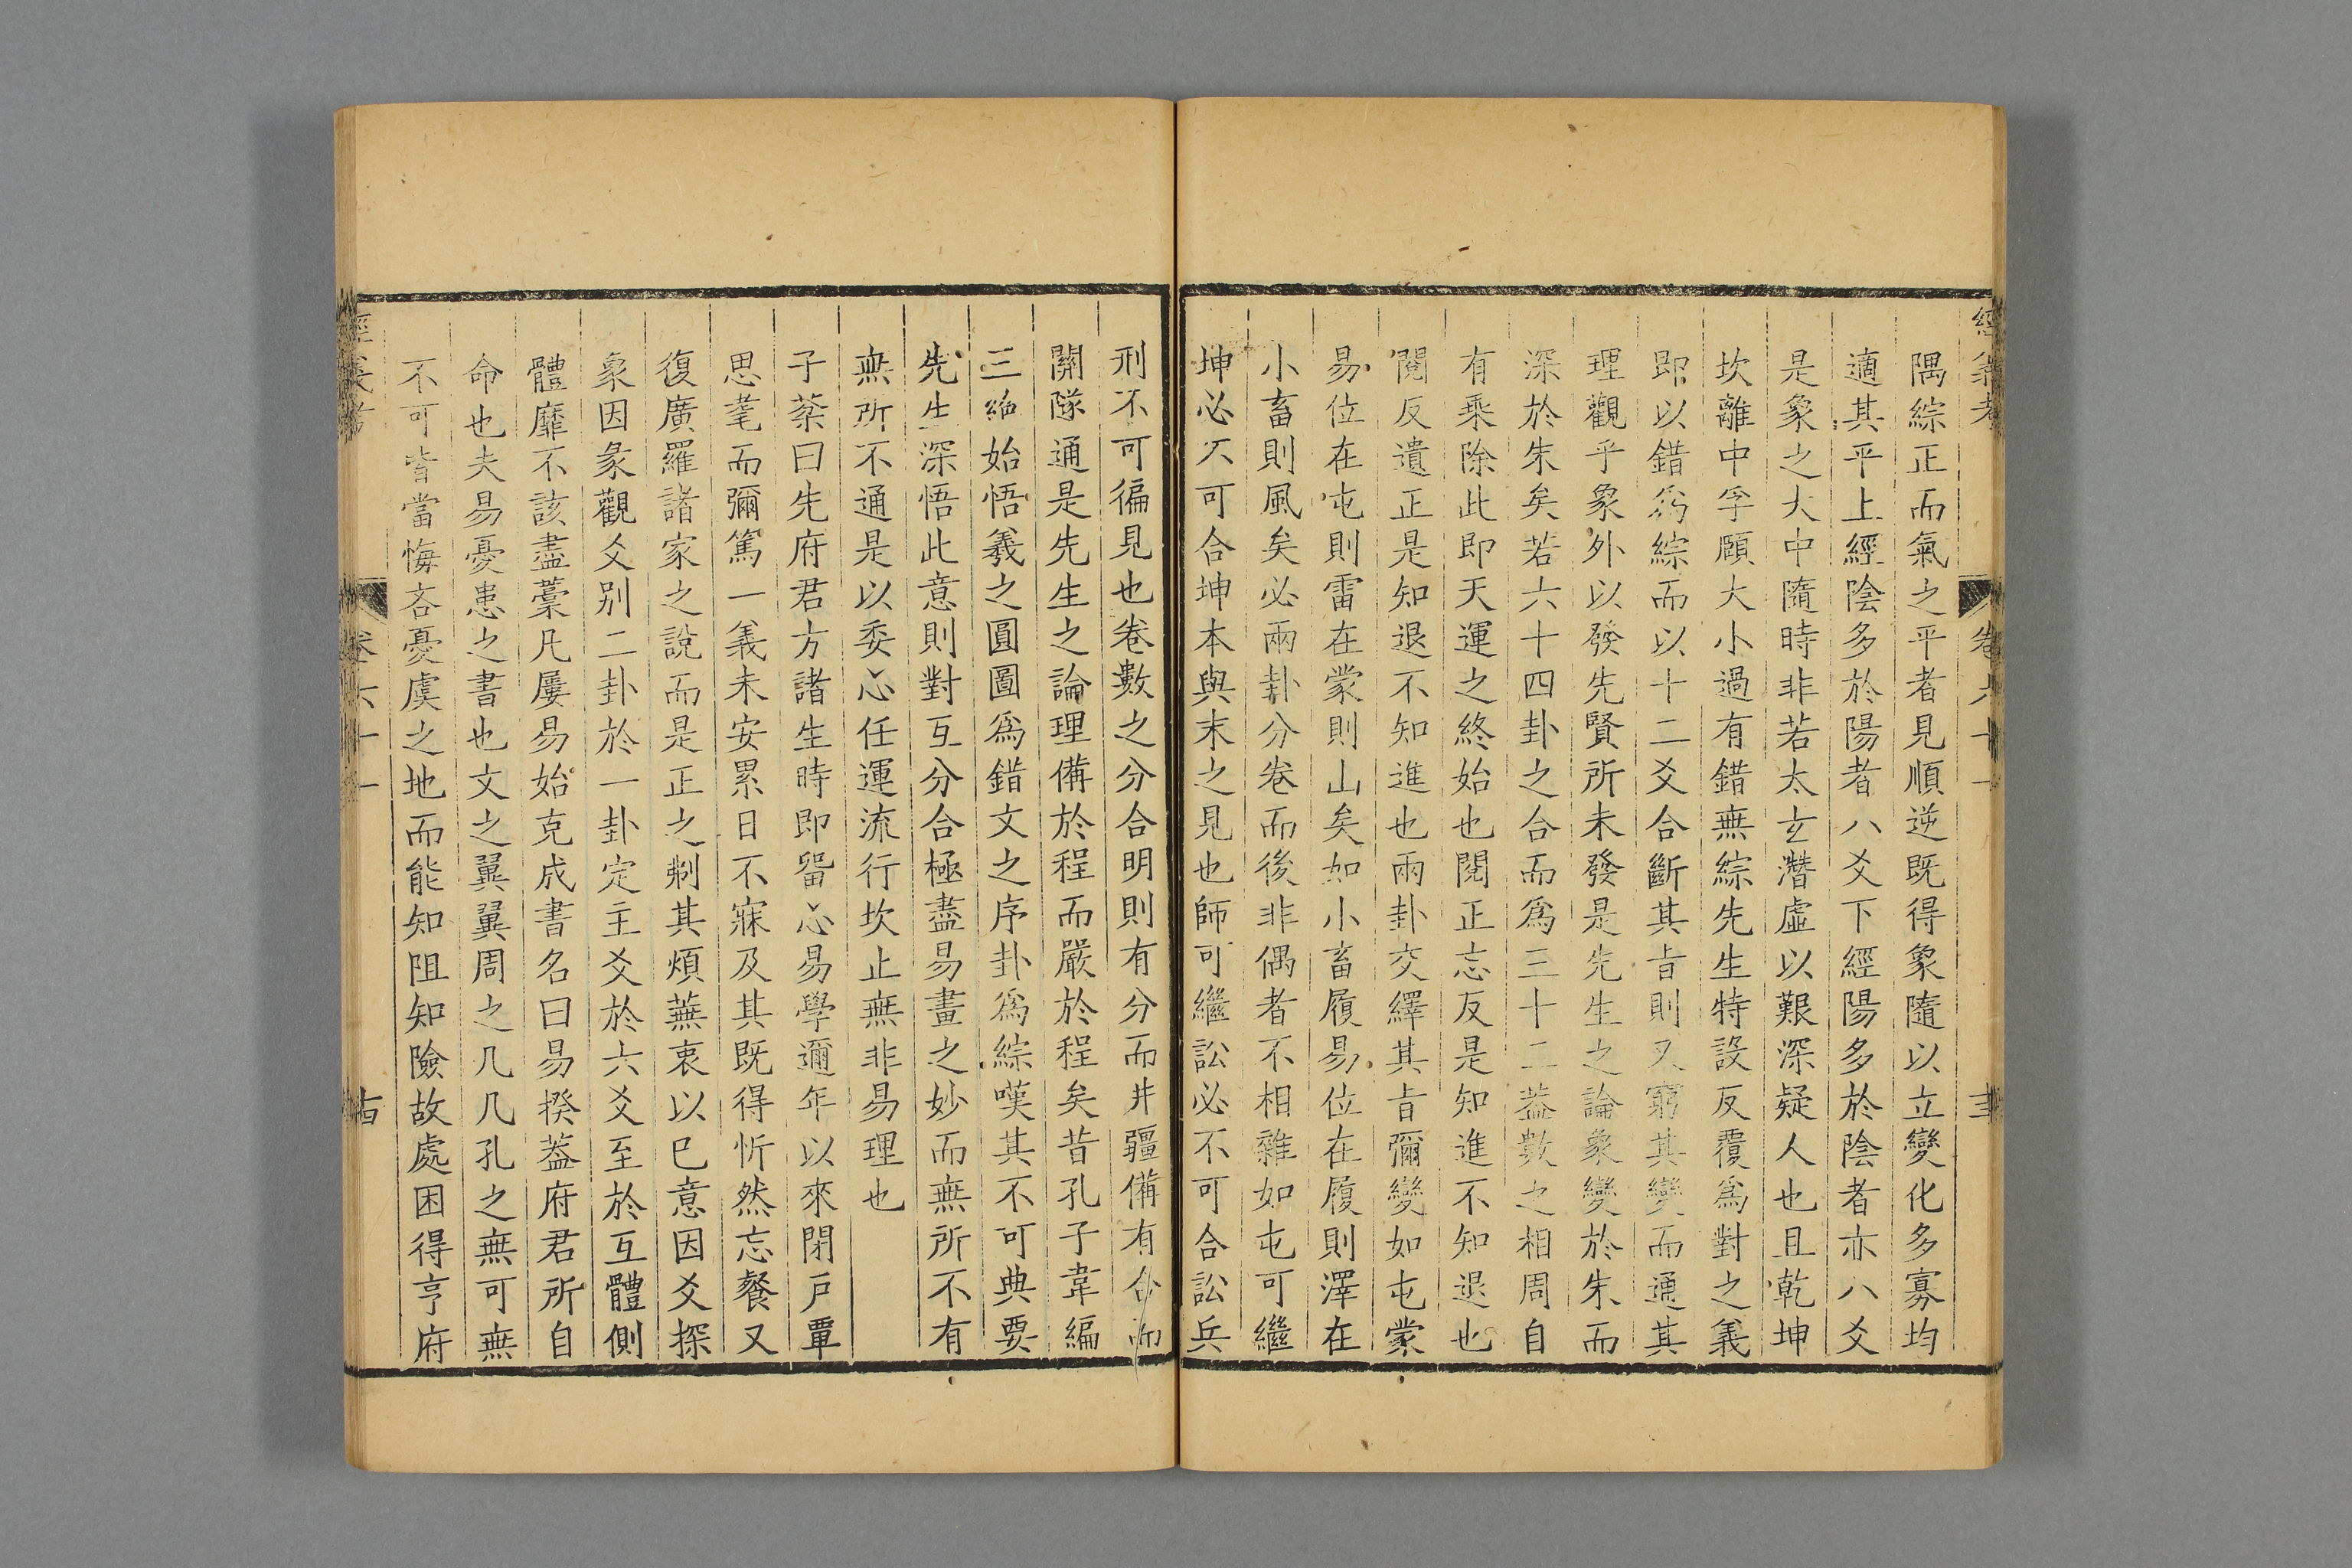 經義考
卷六十一
隅綜正而氣之平者見順逆既得象隨以立變化多寡均
適其平上經陰多於陽者八爻下經陽多於陰者亦八爻
是象之大中隨時非若太玄潛虛以艱深疑人也且乾坤
坎離中孚頤大小過有錯無綜先生特設反覆爲對之義
即以錯爲綜而以十二爻合斷其旨則又窮其變而通其
理觀乎象外以發先賢所未發是先生之論象變於朱而
深於朱矣若六十四卦之合而爲三十二蓋數之相周自
有乘除此即天運之終始也閱正忘反是知進不知退也
閱反遺正是知退不知進也兩卦交繹其旨彌變如屯蒙
易位在屯則雷在蒙則山矣如小畜履易位在履則澤在
小畜則風矣必兩卦分卷而後非偶者不相雜如屯可繼
坤必不可合坤本與末之見也師可繼訟必不可合訟兵
刑不可徧見也卷數之分合明則有分而井疆備有合而
關隊通是先生之論理備於程而嚴於程矣昔孔子韋編
三絶始悟羲之圓圖爲錯文之序卦爲綜嘆其不可典要
先生深悟此意則對互分合極盡易畫之妙而無所不有
無所不通是以委心任運流行坎止無非易理也
子棻曰先府君方諸生時即留心易學邇年以來閉戶覃
思耄而彌篤一義未安累日不寐及其既得忻然忘餐又
復廣羅諸家之說而是正之剃其煩蕪衷以已意因爻探
象因彖觀爻别二卦於一卦定主爻於六爻至於互體側
體靡不該盡藁凡屢易始克成書名曰易揆蓋府君所自
命也夫易憂患之書也文之翼翼周之几几孔之無可無
不可皆當悔吝憂虞之地而能知阻知險故處困得亨府
經義考
卷六十一